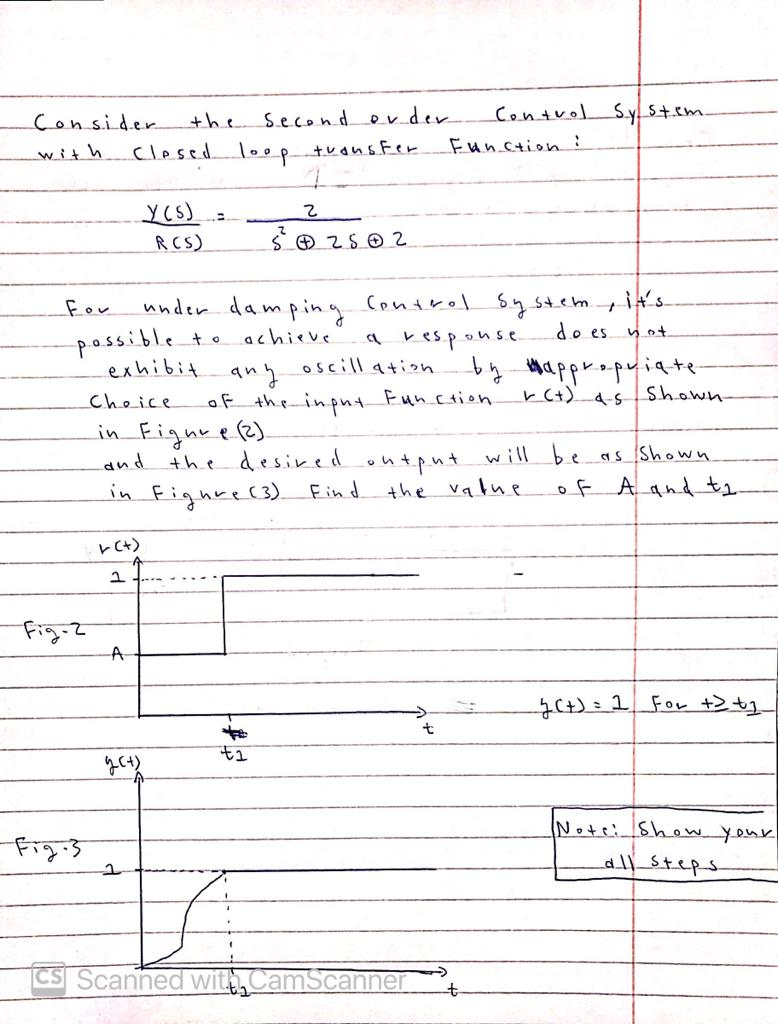 Consider the Second order Control System
with Closed loop transfer Function :
Y(S) / R(S) = 2 / s² ⊕ 2s ⊕ 2
For under damping Control System, it's
possible to achieve a response does not
exhibit any oscillation by appropriate
Choice of the input Function r(t) as Shown
in Figure (2)
and the desired output will be as Shown
in Figure (3) Find the value of A and t1
r(t)
1
Fig-2
A
y(t) = 1 For t≥t1
t
t1
y(t)
Note: Show your
all steps
Fig.3
1
CS Scanned with CamScanner
t1
t